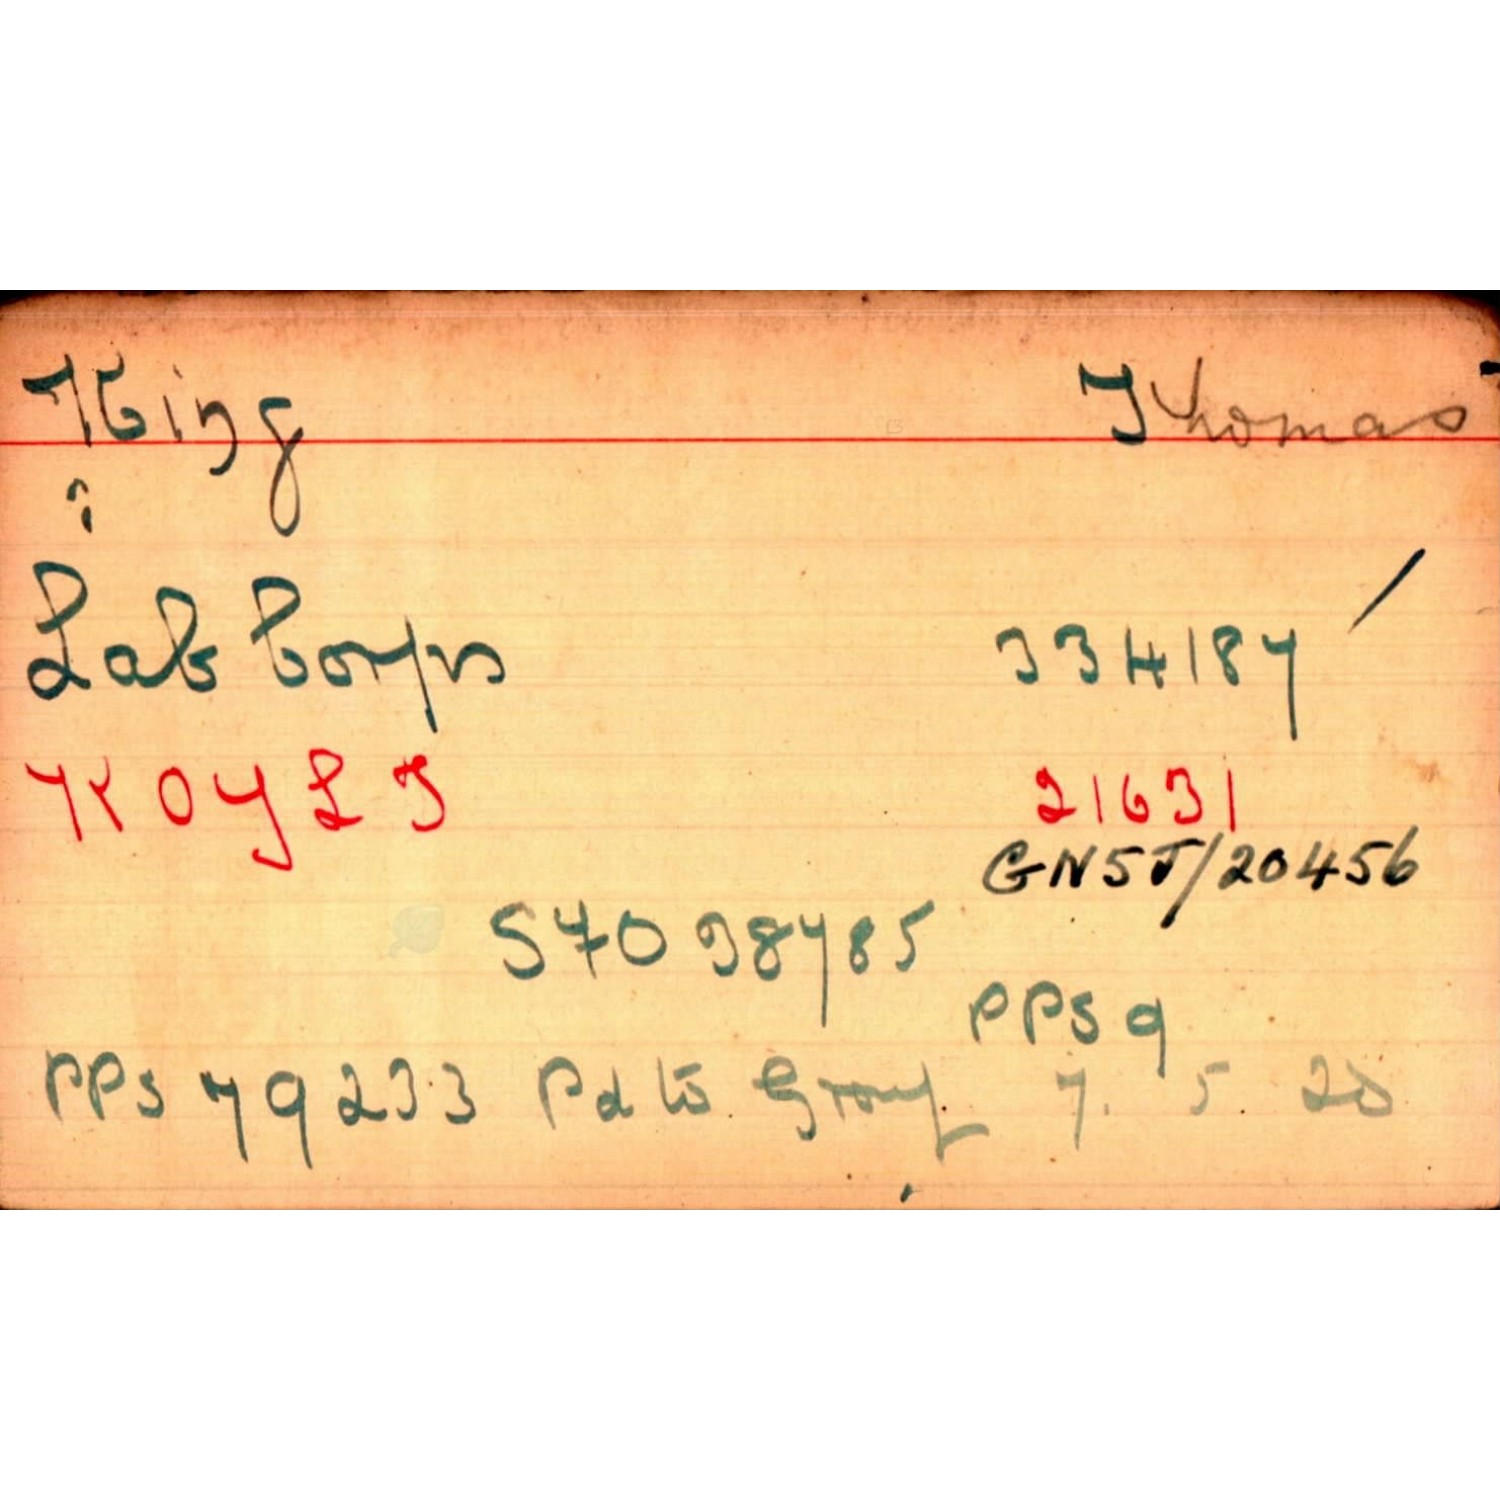 King Thomas
Lab Corps 334187
KOYLI 21631
GN5J/20456
S40 38785
PPS 9
PPS 79233 Pd to Group 7. 5. 20